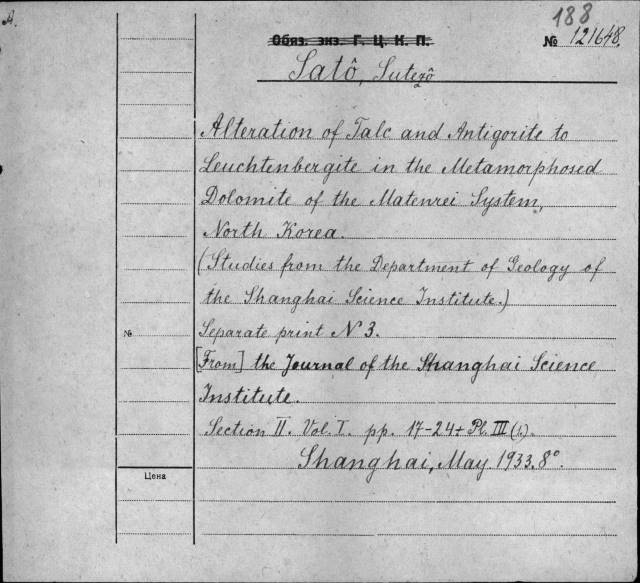 A.
188
Обяз. экз. Г. Ц. К. П.
№ 121648.
Satô, Sutezô
Alteration of Talc and Antigorite to
Leuchtenbergite in the Metamorphosed
Dolomite of the Matenrei System,
North Korea.
(Studies from the Department of Geology of
the Shanghai Science Institute.)
№
Separate print N 3.
[From] the Journal of the Shanghai Science
Institute.
Section II. Vol. I. pp. 17-24 + Pl. III (1).
Shanghai, May 1933. 8°.
Цена